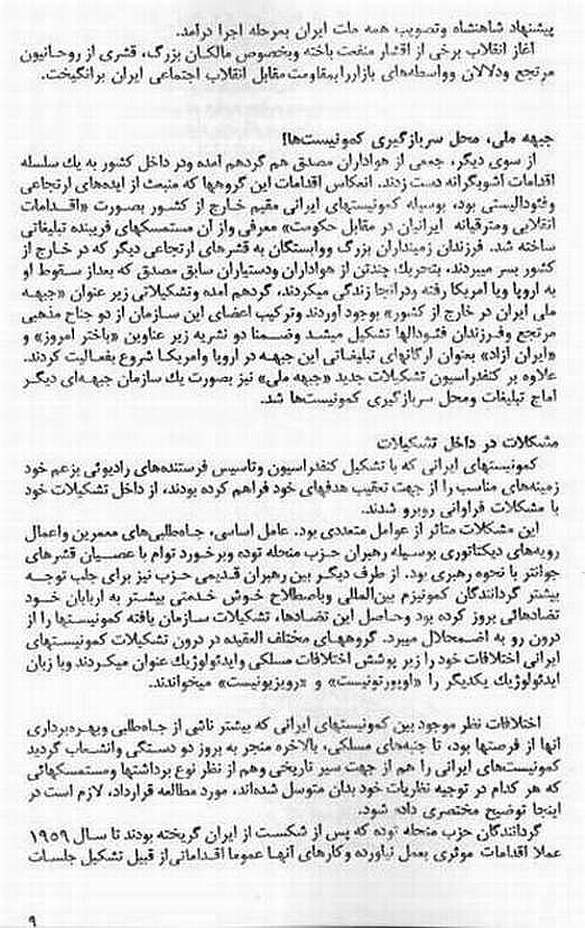 پیشنهاد شاهنشاه وتصویب همه ملت ایران بمرحله اجرا درآمد.
اغاز انقلاب برخی از اقشار منفعت باخته وبخصوص مالکان بزرگ، قشری از روحانیون
مرتجع ودلالان وواسطه‌های بازاررابمقاومت مقابل انقلاب اجتماعی ایران برانگیخت.
جبهه ملی، محل سربازگیری کمونیست‌ها!
از سوی دیگر، جمعی از هواداران مصدق هم گردهم امده ودر داخل کشور به یك سلسله
اقدامات اشوبگرانه دست زدند. انعکاس اقدامات این گروهها که منبعث از ایده‌های ارتجاعی
وفئودالیستی بود، بوسیله کمونیستهای ایرانی مقیم خارج از کشور بصورت «اقدامات
انقلابی ومترقیانه ایرانیان در مقابل حکومت» معرفی واز ان مستمسکهای فریبنده تبلیغاتی
ساخته شد. فرزندان زمینداران بزرگ ووابستگان به قشرهای ارتجاعی دیگر که در خارج از
کشور بسر میبردند، بتحریك چندتن از هواداران ودستیاران سابق مصدق که بعداز سقوط او
به اروپا ویا امریکا رفته ودرانجا زندگی میکردند، گردهم امده وتشکیلاتی زیر عنوان «جبهه
ملی ایران در خارج از کشور» بوجود اوردند وترکیب اعضای این سازمان از دو جناح مذهبی
مرتجع وفرزندان فئودالها تشکیل میشد وضمنا دو نشریه زیر عناوین «باختر امروز» و
«ایران ازاد» بعنوان ارگانهای تبلیغاتی این جبهه در اروپا وامریکا شروع بفعالیت کردند.
علاوه بر کنفدراسیون تشکیلات جدید «جبهه ملی» نیز بصورت یك سازمان جبهه‌ای دیگر
اماج تبلیغات ومحل سربازگیری کمونیست‌ها شد.
مشکلات در داخل تشکیلات
کمونیستهای ایرانی که با تشکیل کنفدراسیون وتاسیس فرستنده‌های رادیوئی بزعم خود
زمینه‌های مناسب را از جهت تعقیب هدفهای خود فراهم کرده بودند، از داخل تشکیلات خود
با مشکلات فراوانی روبرو شدند.
این مشکلات متاثر از عوامل متعددی بود. عامل اساسی، جاه‌طلبی‌های معمرین واعمال
رویه‌های دیکتاتوری بوسیله رهبران حزب منحله توده وبرخورد توام با عصیان قشرهای
جوانتر با نحوه رهبری بود. از طرف دیگر بین رهبران قدیمی حزب نیز برای جلب توجه
بیشتر گردانندگان کمونیزم بین‌المللی وباصطلاح خوش خدمتی بیشتر به اربابان خود
تضادهائی بروز کرده بود وحاصل این تضادها، تشکیلات سازمان یافته کمونیستها را از
درون رو به اضمحلال میبرد. گروههای مختلف العقیده در درون تشکیلات کمونیستهای
ایرانی اختلافات خود را زیر پوشش اختلافات مسلکی وایدئولوژیك عنوان میکردند وبا زبان
ایدئولوژیك یکدیگر را «اوپورتونیست» و «رویزیونیست» میخواندند.
اختلافات نظر موجود بین کمونیستهای ایرانی که بیشتر ناشی از جاه‌طلبی وبهره‌برداری
انها از فرصتها بود، تا جنبه‌های مسلکی، بالاخره منجر به بروز دو دستگی وانشعاب گردید
کمونیست‌های ایرانی را هم از جهت سیر تاریخی وهم از نظر نوع برداشتها ومستمسکهائی
که هر کدام در توجیه نظریات خود بدان متوسل شده‌اند، مورد مطالعه قرارداد، لازم است در
اینجا توضیح مختصری داده شود.
گردانندگان حزب منحله توده که پس از شکست از ایران گریخته بودند تا سال ۱۹۵۹
عملا اقدامات موثری بعمل نیاورده وکارهای آنها عموما اقداماتی‌از قبیل تشکیل جلسات
۹